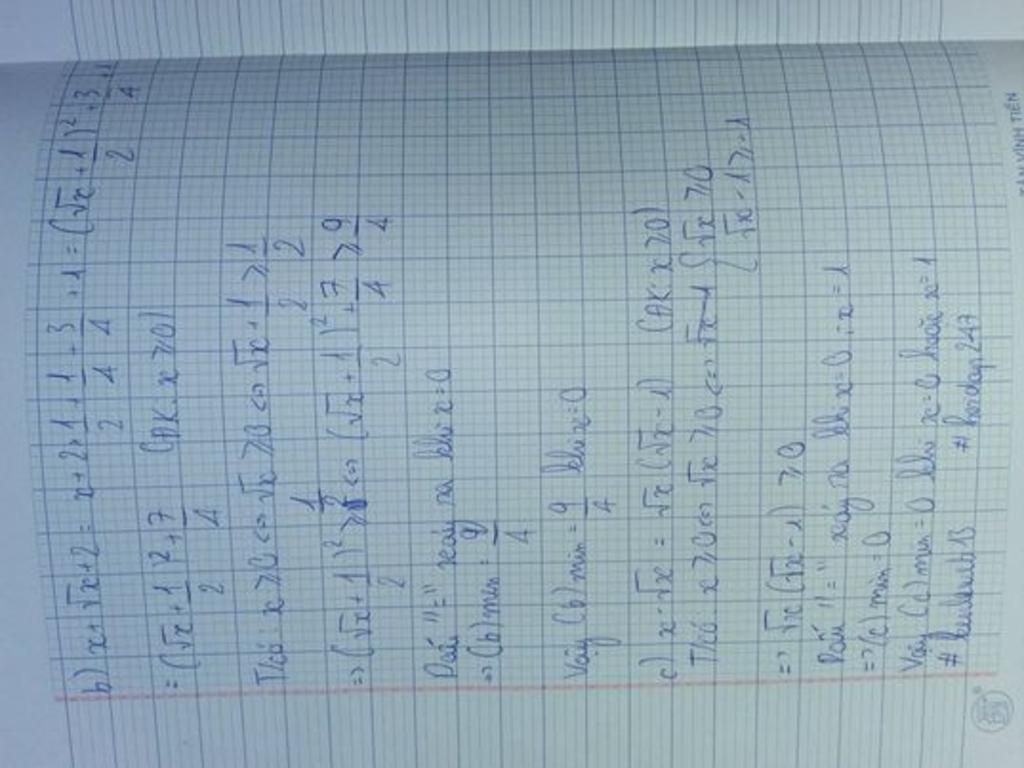 b) x+√x+2 = x+2×1/2+1/4+3/4+1 = (√x+1/2)²+3/4+1
= (√x+1/2)²+7/4 (ĐK: x≥0)
Ta có: x≥0 <=> √x≥0 <=> √x+1/2≥1/2
=> (√x+1/2)²≥1/2 <=> (√x+1/2)²+7/4≥9/4
Dấu "=" xảy ra khi x=0
=> (b) min = 9/4
Vậy (b) min = 9/4 khi x=0
c) x-√x = √x(√x-1) (ĐK: x≥0)
Ta có: x≥0 <=> √x≥0 <=> √x-1 { √x≥0
√x-1≥-1
=> √x(√x-1) ≥0
Dấu "=" xảy ra khi x=0; x=1
=> (c) min=0
Vậy (c) min=0 khi x=0 hoặc x=1
# hoidap247
TÂN VĨNH TIẾN